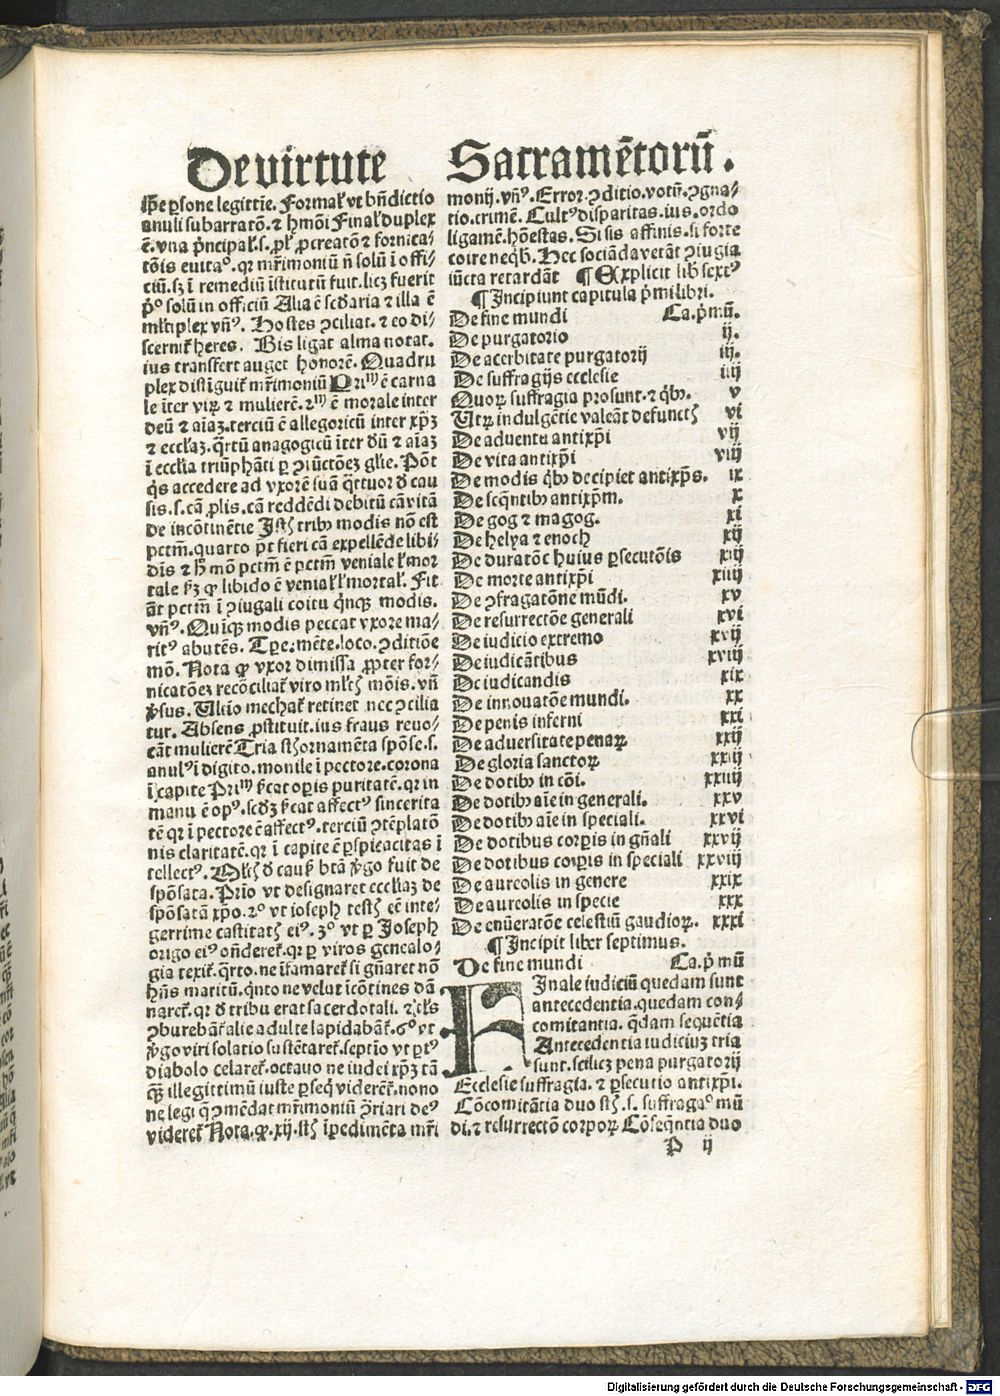 De virtute Sacramẽtorũ.
ꝑsone legittĩe. Formał vt bñdictio
anuli subarratõ. ⁊ hmõi Finał duplex
ẽ. vna pͥncipał. s. ꝓł ꝓcreatõ ⁊ fornica-
tõis euitaº. qꝛ mr̃imoniũ ñ solũ ĩ offi-
ciũ. sꝫ ĩ remediũ ĩstitutũ fuit. licꝫ fuerit
pͥº solũ in officiũ Alia ẽ scd̃aria ⁊ illa ẽ
mł̃tiplex vñꝰ. Hostes ꝯciliat. ⁊ eo di-
scernit̃ heres. Bis ligat alma notat.
ius transfert auget honorẽ. Quadru
plex distĩguit̃ mr̃imoniũ Pri ẽ carna
le ĩter virꝝ ⁊ mulierẽ. 2 ẽ morale inter
deũ ⁊ aĩaꝫ. terciũ ẽ allegoricũ inter xp̃ꝫ
⁊ eccl̃iaꝫ. qͣrtũ anagogicũ ĩter ⁊ aĩaꝫ
ĩ eccl̃ia triũphãti ꝑ ꝯiũctõeꝫ gl̃ie. Põt
qͥs accedere ad vxorẽ suã qͣttuor cau
sis. s. cã ꝓlis. cã reddẽdi debitũ cã vitã
de incõtinẽtie tribꝰ modis nõ est
pctm̃. quarto pͣt fieri cã expellẽde libi-
dĩs ⁊ mõ pctm̃ ẽ pctm̃ veniale ł mor
tale libido ẽ veniał ł mortał. Fit
ãt pctm̃ ĩ ꝯiugali coitu qͥnqꝫ modis.
vñꝰ. Quĩqꝫ modis peccat vxore ma-
ritꝰ abutẽs. Tꝑe. mẽte. loco. ꝯditiõe
mõ. Nota ꝙ vxor dimissa ꝓpter for-
nicatõeꝫ recõciliat̃ viro młtꝭ mõis. vñ
ꝟsus. Ultĩo mechat̃ retinet nec ꝯcilia
tur. Absens ꝓstituit. ius fraus reuo-
cãt mulierẽ Tria st̃ ornamẽta spõse. s.
anulꝰ ĩ digito. monile ĩ pectore. corona
ĩ capite Pri opis puritatẽ. qꝛ in
manu ẽ opꝰ. affectꝰ sincerita
tẽ qꝛ ĩ pectore ẽ affectꝰ. terciũ ꝯtẽplatõ
nis claritatẽ. qꝛ ĩ capite ẽ ꝑspicacitas ĩ
tellectꝰ. caus̃ btã ꝟgo fuit de
spõsata. Prĩo vt designaret eccl̃iaꝫ de
spõsatã xp̃o. 2º vt ioseph testꝭ eẽ inte-
gerrime castitatꝭ eiꝰ. 3º vt ꝑ Joseph
origo eiꝰ oñderet̃. qꝛ ꝑ viros genealo-
gia texit̃. qͣrto. ne ĩfamaret̃ si gñaret nõ
hñs maritũ. qͥnto ne velut ĩcõtines dã
naret̃. qꝛ tribu erat sacerdotali.
ꝯburebãt̃ alie adulte lapidabãt̃. 6º vt
ꝟgo viri solatio sustẽtaret̃. septĩo vt ꝑtꝰ
diabolo celaret̃. octauo ne iudei xp̃ꝫ tã
qꝫ illegittimũ iuste ꝑseq̃ viderẽt̃. nono
ne legi q̃ ꝯmẽdat mr̃imoniũ ꝯ̃riari deꝰ
videret̃ Nota. ꝙ. xij. st̃ ĩpedimẽta mr̃i
monij. vñꝰ. Error. ꝯditio. votũ. ꝯgna-
tio. crimẽ. Cultꝰ disparitas. ius. ordo
ligamẽ. hõestas. Si sis affinis. si forte
coire neqͥbꝭ. Hec sociãda vetãt ꝯiugia
iũcta retardãt ¶ Explicit lib̃ sextꝰ
¶ Incipiunt capitula pͥmi libri.
De fine mundi Ca. pͥmũ.
De purgatorio ij.
De acerbitate purgatorij iij.
De suffragijs ecclesie iiij
Quoꝝ suffragia prosunt. ⁊ qͥbꝰ. v
Utꝝ indulgẽtie valeãt defunctꝭ vi
De aduentu antixp̃i vij
De vita antixp̃i viij
De modis qͥbꝰ decipiet antixp̃s. ix
De seq̃ntibꝰ antixp̃m. x
De gog ⁊ magog. xi
De helya ⁊ enoch xij
De duratõe huius ꝑsecutõis xiij
De morte antixp̃i xiiij
De ꝯfragatõne mũdi. xv
De resurrectõe generali xvi
De iudicio extremo xvij
De iudicãtibus xviij
De iudicandis xix
De innouatõe mundi. xx
De penis inferni xxi
De aduersitate penaꝝ xxij
De gloria sanctoꝝ xxiij
De dotibꝰ in cõi. xxiiij
De dotibꝰ aĩe in generali. xxv
De dotibꝰ aĩe in speciali. xxvi
De dotibus corꝑis in gñali xxvij
De dotibus corꝑis in speciali xxviij
De aureolis in genere xxix
De aureolis in specie xxx
De enũeratõe celestiũ gaudioꝝ. xxxi
¶ Incipit liber septimus.
De fine mundi Ca. pͥ mũ
FInale iudiciũ quedam sunt
antecedentia. quedam con-
comitantia. q̃dam sequẽtia
Antecedentia iudiciuꝫ tria
sunt. scilicꝫ pena purgatorij
Ecclesie suffragia. ⁊ ꝑsecutio antixp̃i.
Cõcomitãtia duo st̃. s. suffragaº mũ
di. ⁊ resurrectõ corpoꝝ Cõseq̃ntia duo
P ij
Digitalisierung gefördert durch die Deutsche Forschungsgemeinschaft - DFG